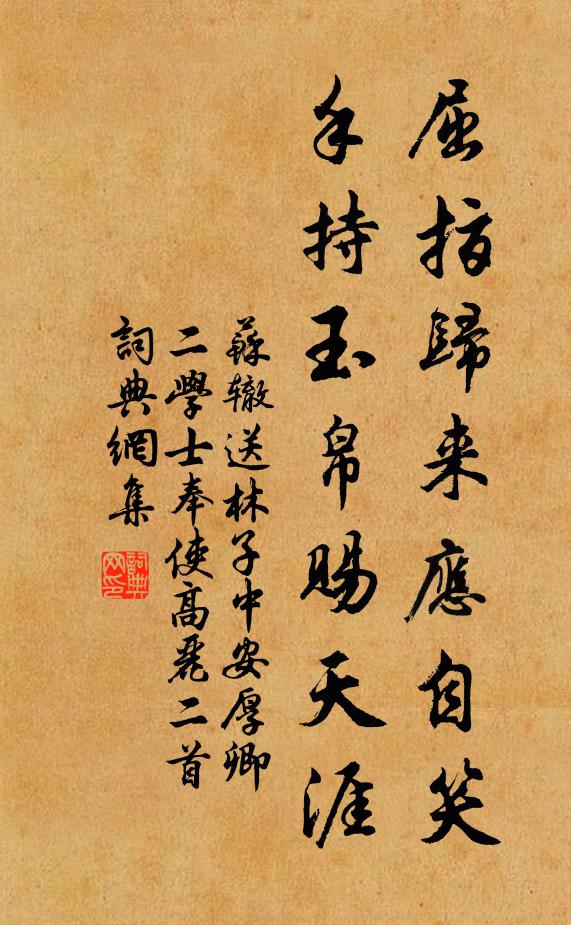 屈指歸來應自笑
手持玉帛賜天涯
蘇轍送林子中安厚卿
二學士奉使高麗二首
詞典網集
詞典
网印